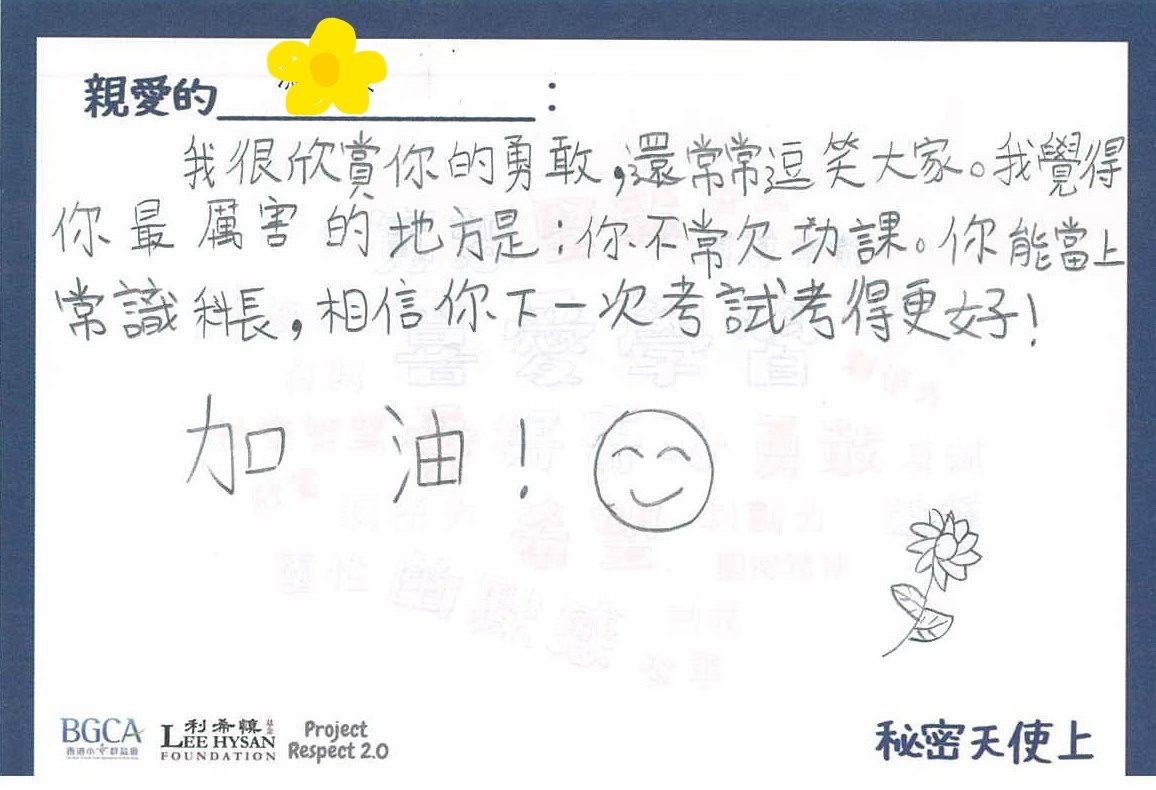 親愛的 :
我很欣賞你的勇敢,還常常逗笑大家。我覺得
你最厲害的地方是:你不常欠功課。你能當上
常識科長,相信你下一次考試考得更好!
加油!
BGCA
香港小童群益會
利希慎基金
LEE HYSAN
FOUNDATION
Project
Respect 2.0
秘密天使上